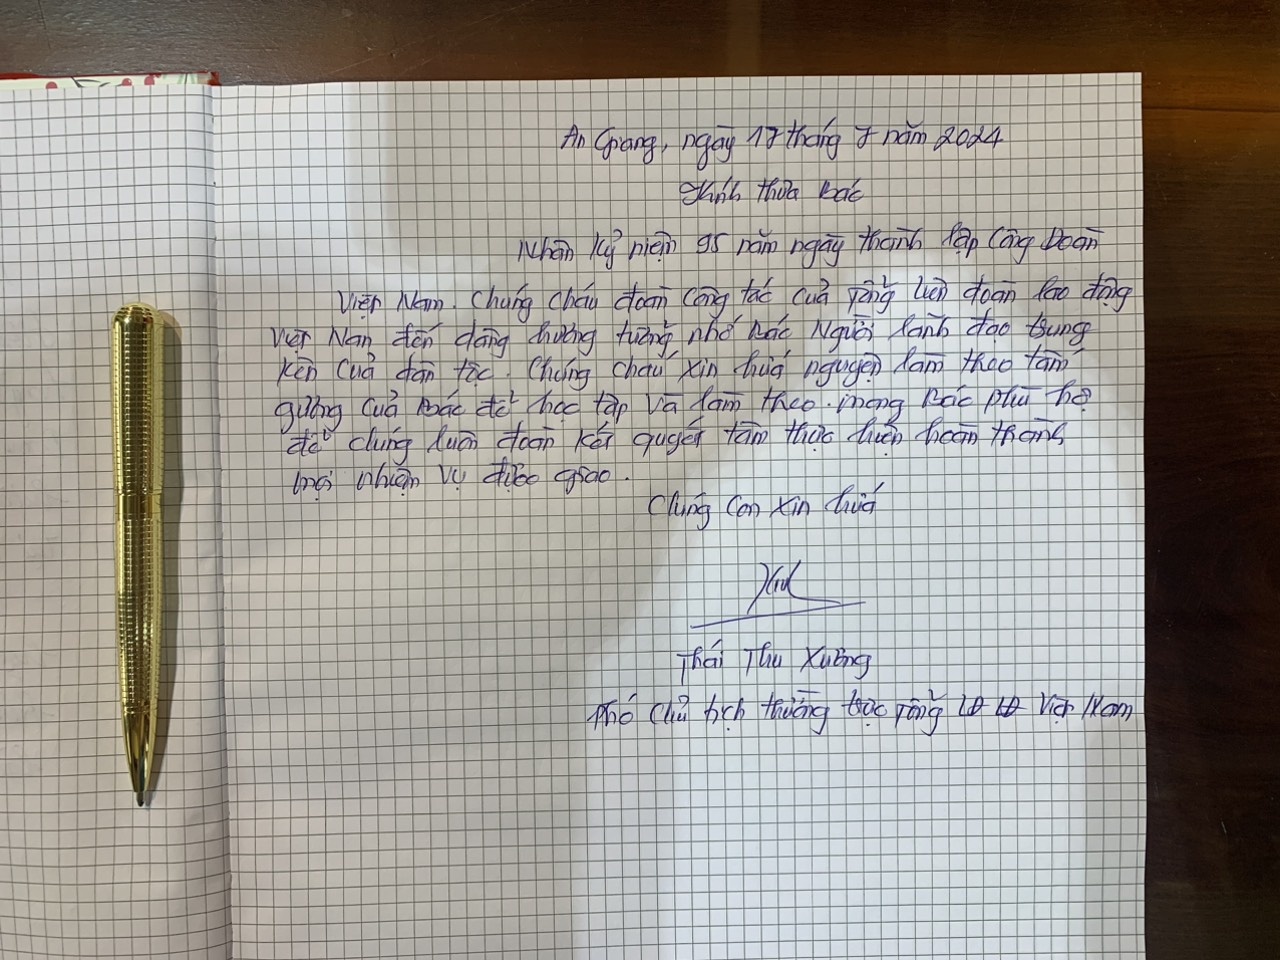 An Giang, ngày 17 tháng 7 năm 2024
Kính thưa Bác
Nhân kỷ niệm 95 năm ngày thành lập Công Đoàn
Việt Nam. Chúng cháu đoàn công tác của Tổng liên đoàn lao động
Việt Nam đến dâng hương tưởng nhớ Bác Người lãnh đạo trung
kên của dân tộc. Chúng cháu xin hứa nguyện làm theo tấm
gương của Bác để học tập và làm theo. mong Bác phù hộ
để chúng luôn đoàn kết quyết tâm thực hiện hoàn thành
mọi nhiệm vụ được giao.
Chúng con xin hứa
Thái Thu Xương
Phó chủ tịch thường trực Tổng LĐ LĐ Việt Nam